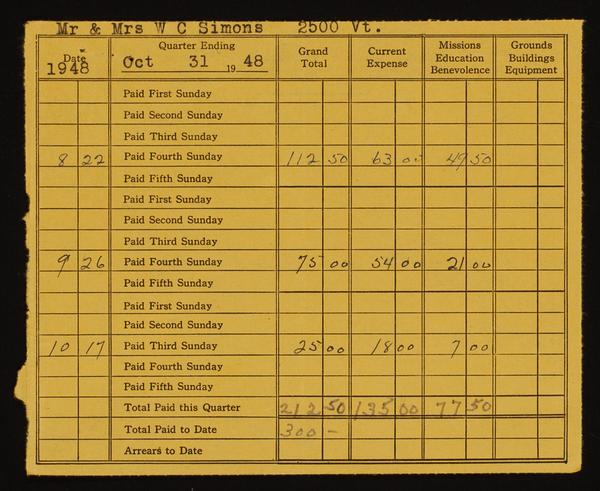 Mr & Mrs W C Simons 2500 Vt.
Date Quarter Ending Grand Total Current Expense Missions Education Benevolence Grounds Buildings Equipment
1948 Oct 31 19 48
Paid First Sunday
Paid Second Sunday
Paid Third Sunday
8 22 Paid Fourth Sunday 112 50 63 00 49 50
Paid Fifth Sunday
Paid First Sunday
Paid Second Sunday
Paid Third Sunday
9 26 Paid Fourth Sunday 75 00 54 00 21 00
Paid Fifth Sunday
Paid First Sunday
Paid Second Sunday
10 17 Paid Third Sunday 25 00 18 00 7 00
Paid Fourth Sunday
Paid Fifth Sunday
Total Paid this Quarter 212 50 135 00 77 50
Total Paid to Date 300 –
Arrears to Date